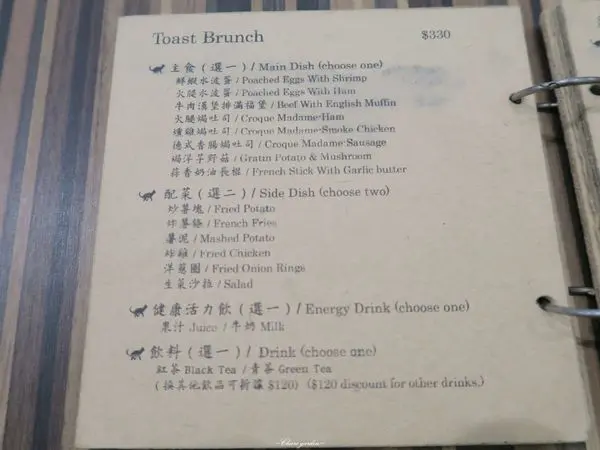 Toast Brunch $330
主食 ( 選一 ) / Main Dish (choose one)
鮮蝦水波蛋 / Poached Eggs With Shrimp
火腿水波蛋 / Poached Eggs With Ham
牛肉漢堡排滿福堡 / Beef With English Muffin
火腿焗吐司 / Croque Madame-Ham
燻雞焗吐司 / Croque Madame-Smoke Chicken
德式香腸焗吐司 / Croque Madame-Sausage
焗洋芋野菇 / Gratin Potato & Mushroom
蒜香奶油長棍 / French Stick With Garlic butter
配菜 ( 選二 ) / Side Dish (choose two)
炒薯塊 / Fried Potato
炸薯條 / French Fries
薯泥 / Mashed Potato
炸雞 / Fried Chicken
洋蔥圈 / Fried Onion Rings
生菜沙拉 / Salad
健康活力飲 ( 選一 ) / Energy Drink (choose one)
果汁 Juice / 牛奶 Milk
飲料 ( 選一 ) / Drink (choose one)
紅茶 Black Tea / 青茶 Green Tea
( 換其他飲品可折讓 $120 ) ($120 discount for other drinks.)